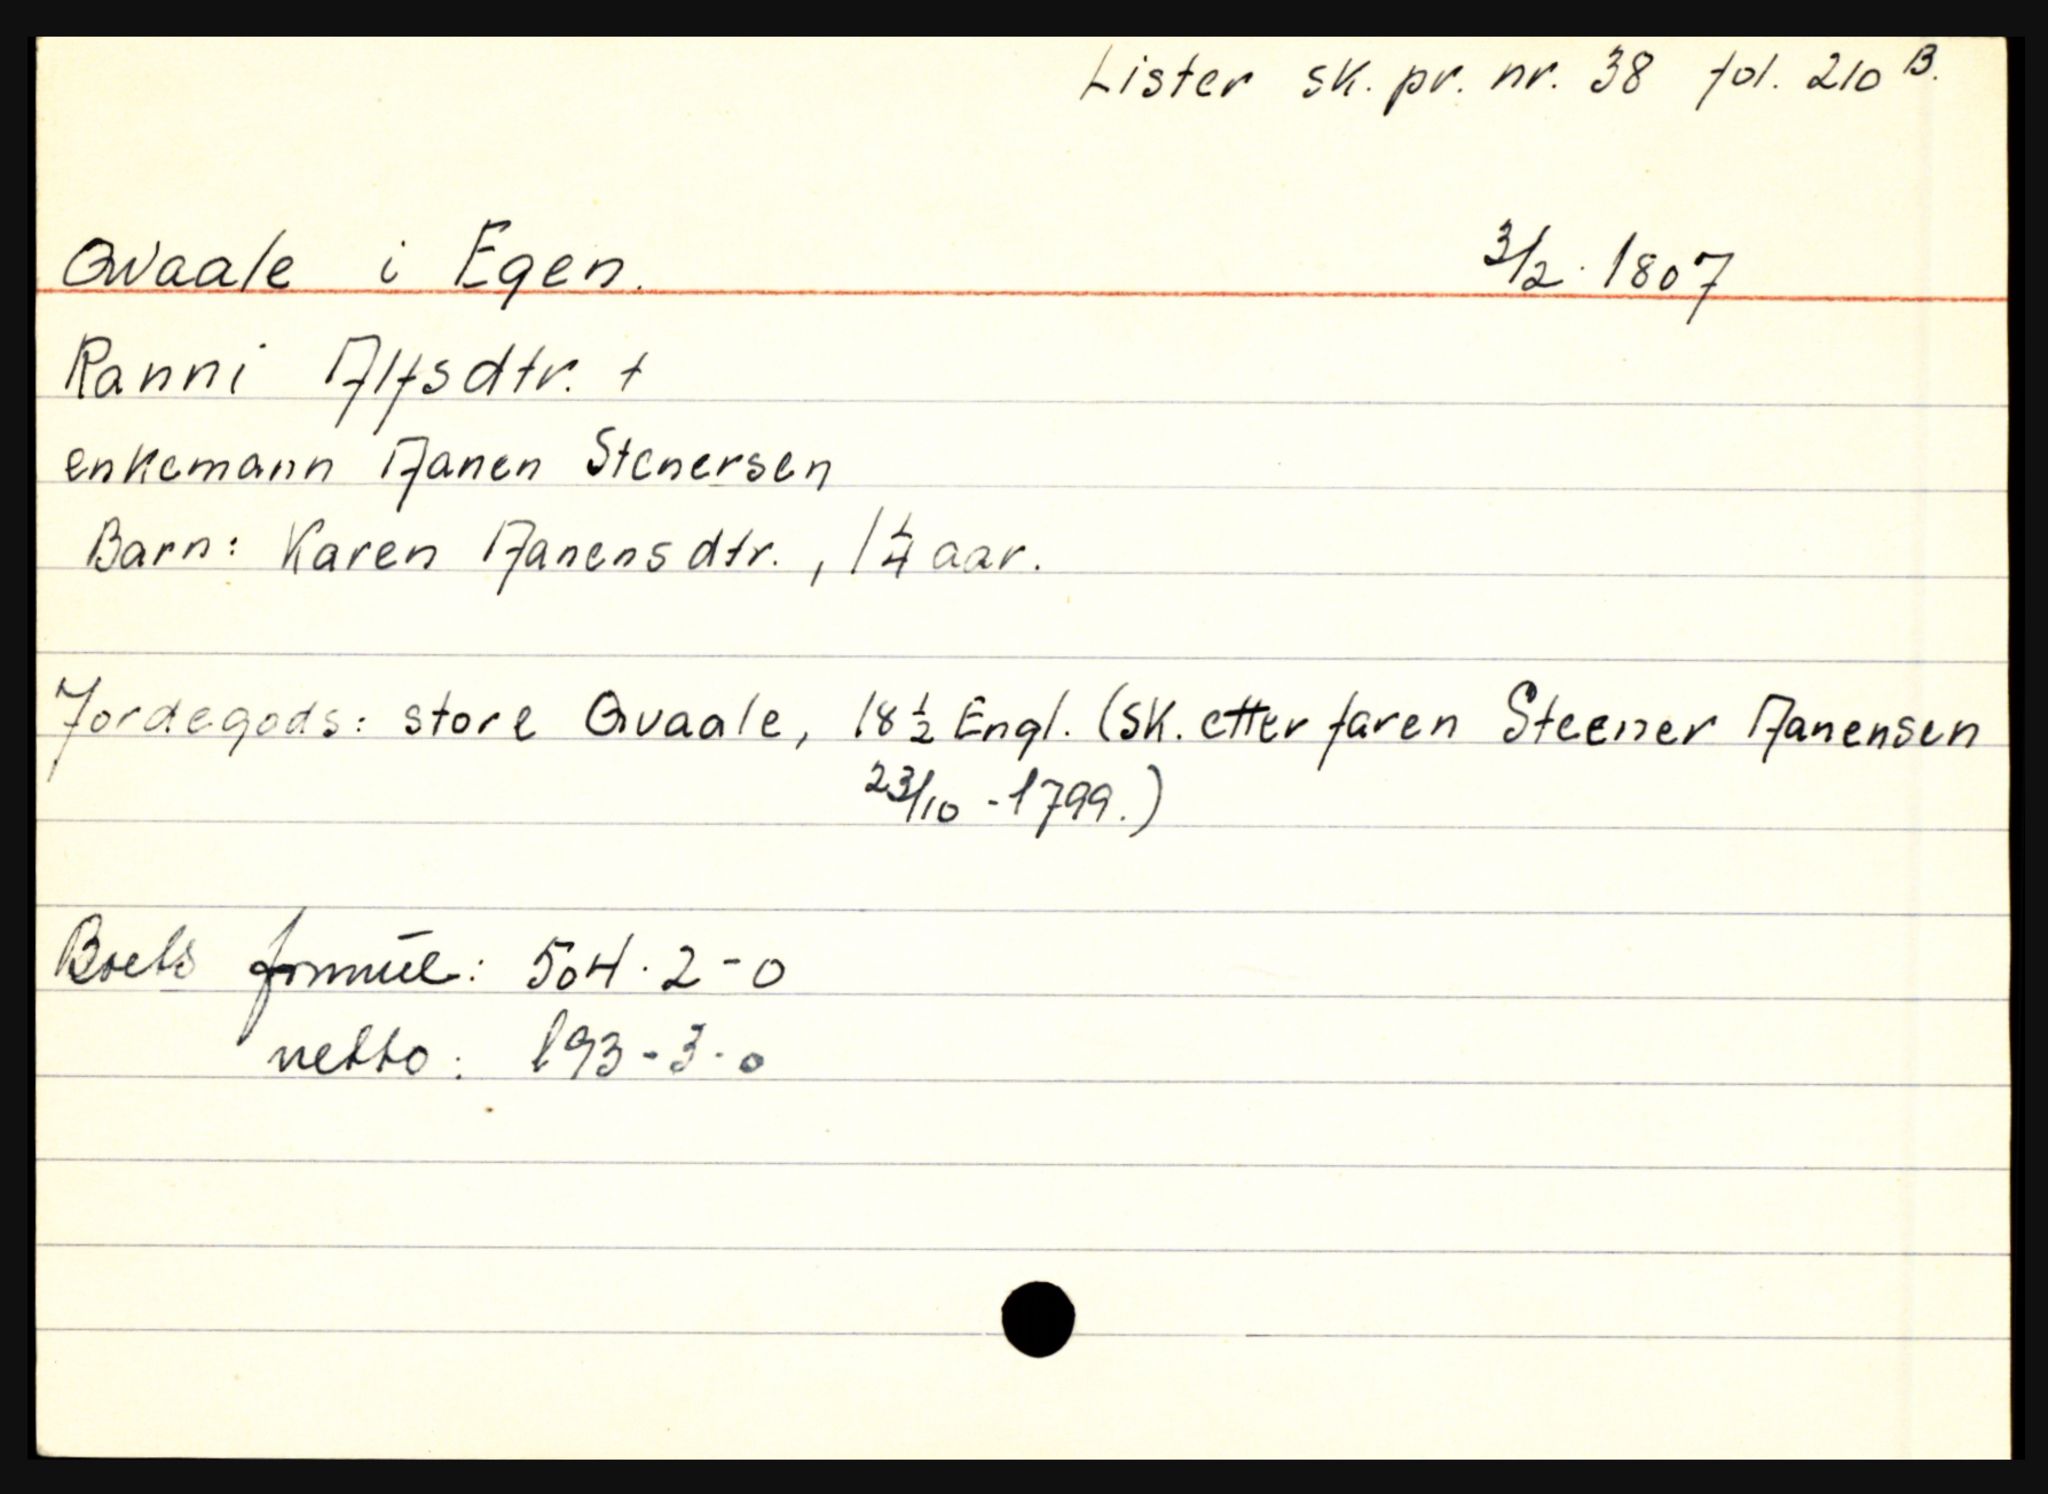 Lister sk. pr. nr. 38 fol. 210 B.
Qvaale i Egen. 3/2. 1807
Ranni Alfsdtr. †
enkemann Aanen Stenersen
Barn: Karen Aanensdtr., 1 1/4 aar.
Jordegods: store Qvaale, 18 1/2 Engl. (sk. etter faren Steener Aanensen
23/10 - 1799.)
Boets formue: 504 . 2 - 0
netto: 193 - 3 - 0